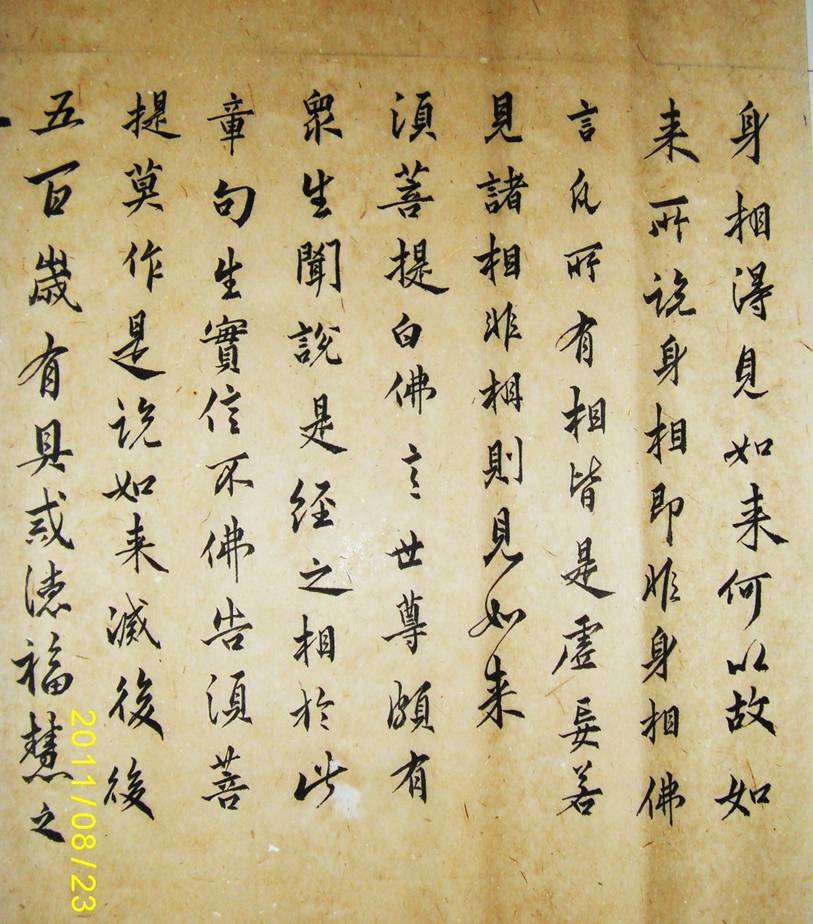 身相得見如来何以故如
来所说身相即非身相佛
言凡所有相皆是虚妄若
見諸相非相則見如来
須菩提白佛言世尊頗有
衆生聞説是經之相於此
章句生實信不佛告須菩
提莫作是说如来滅後後
五百嵗有具戒德福慧之
2011/08/23